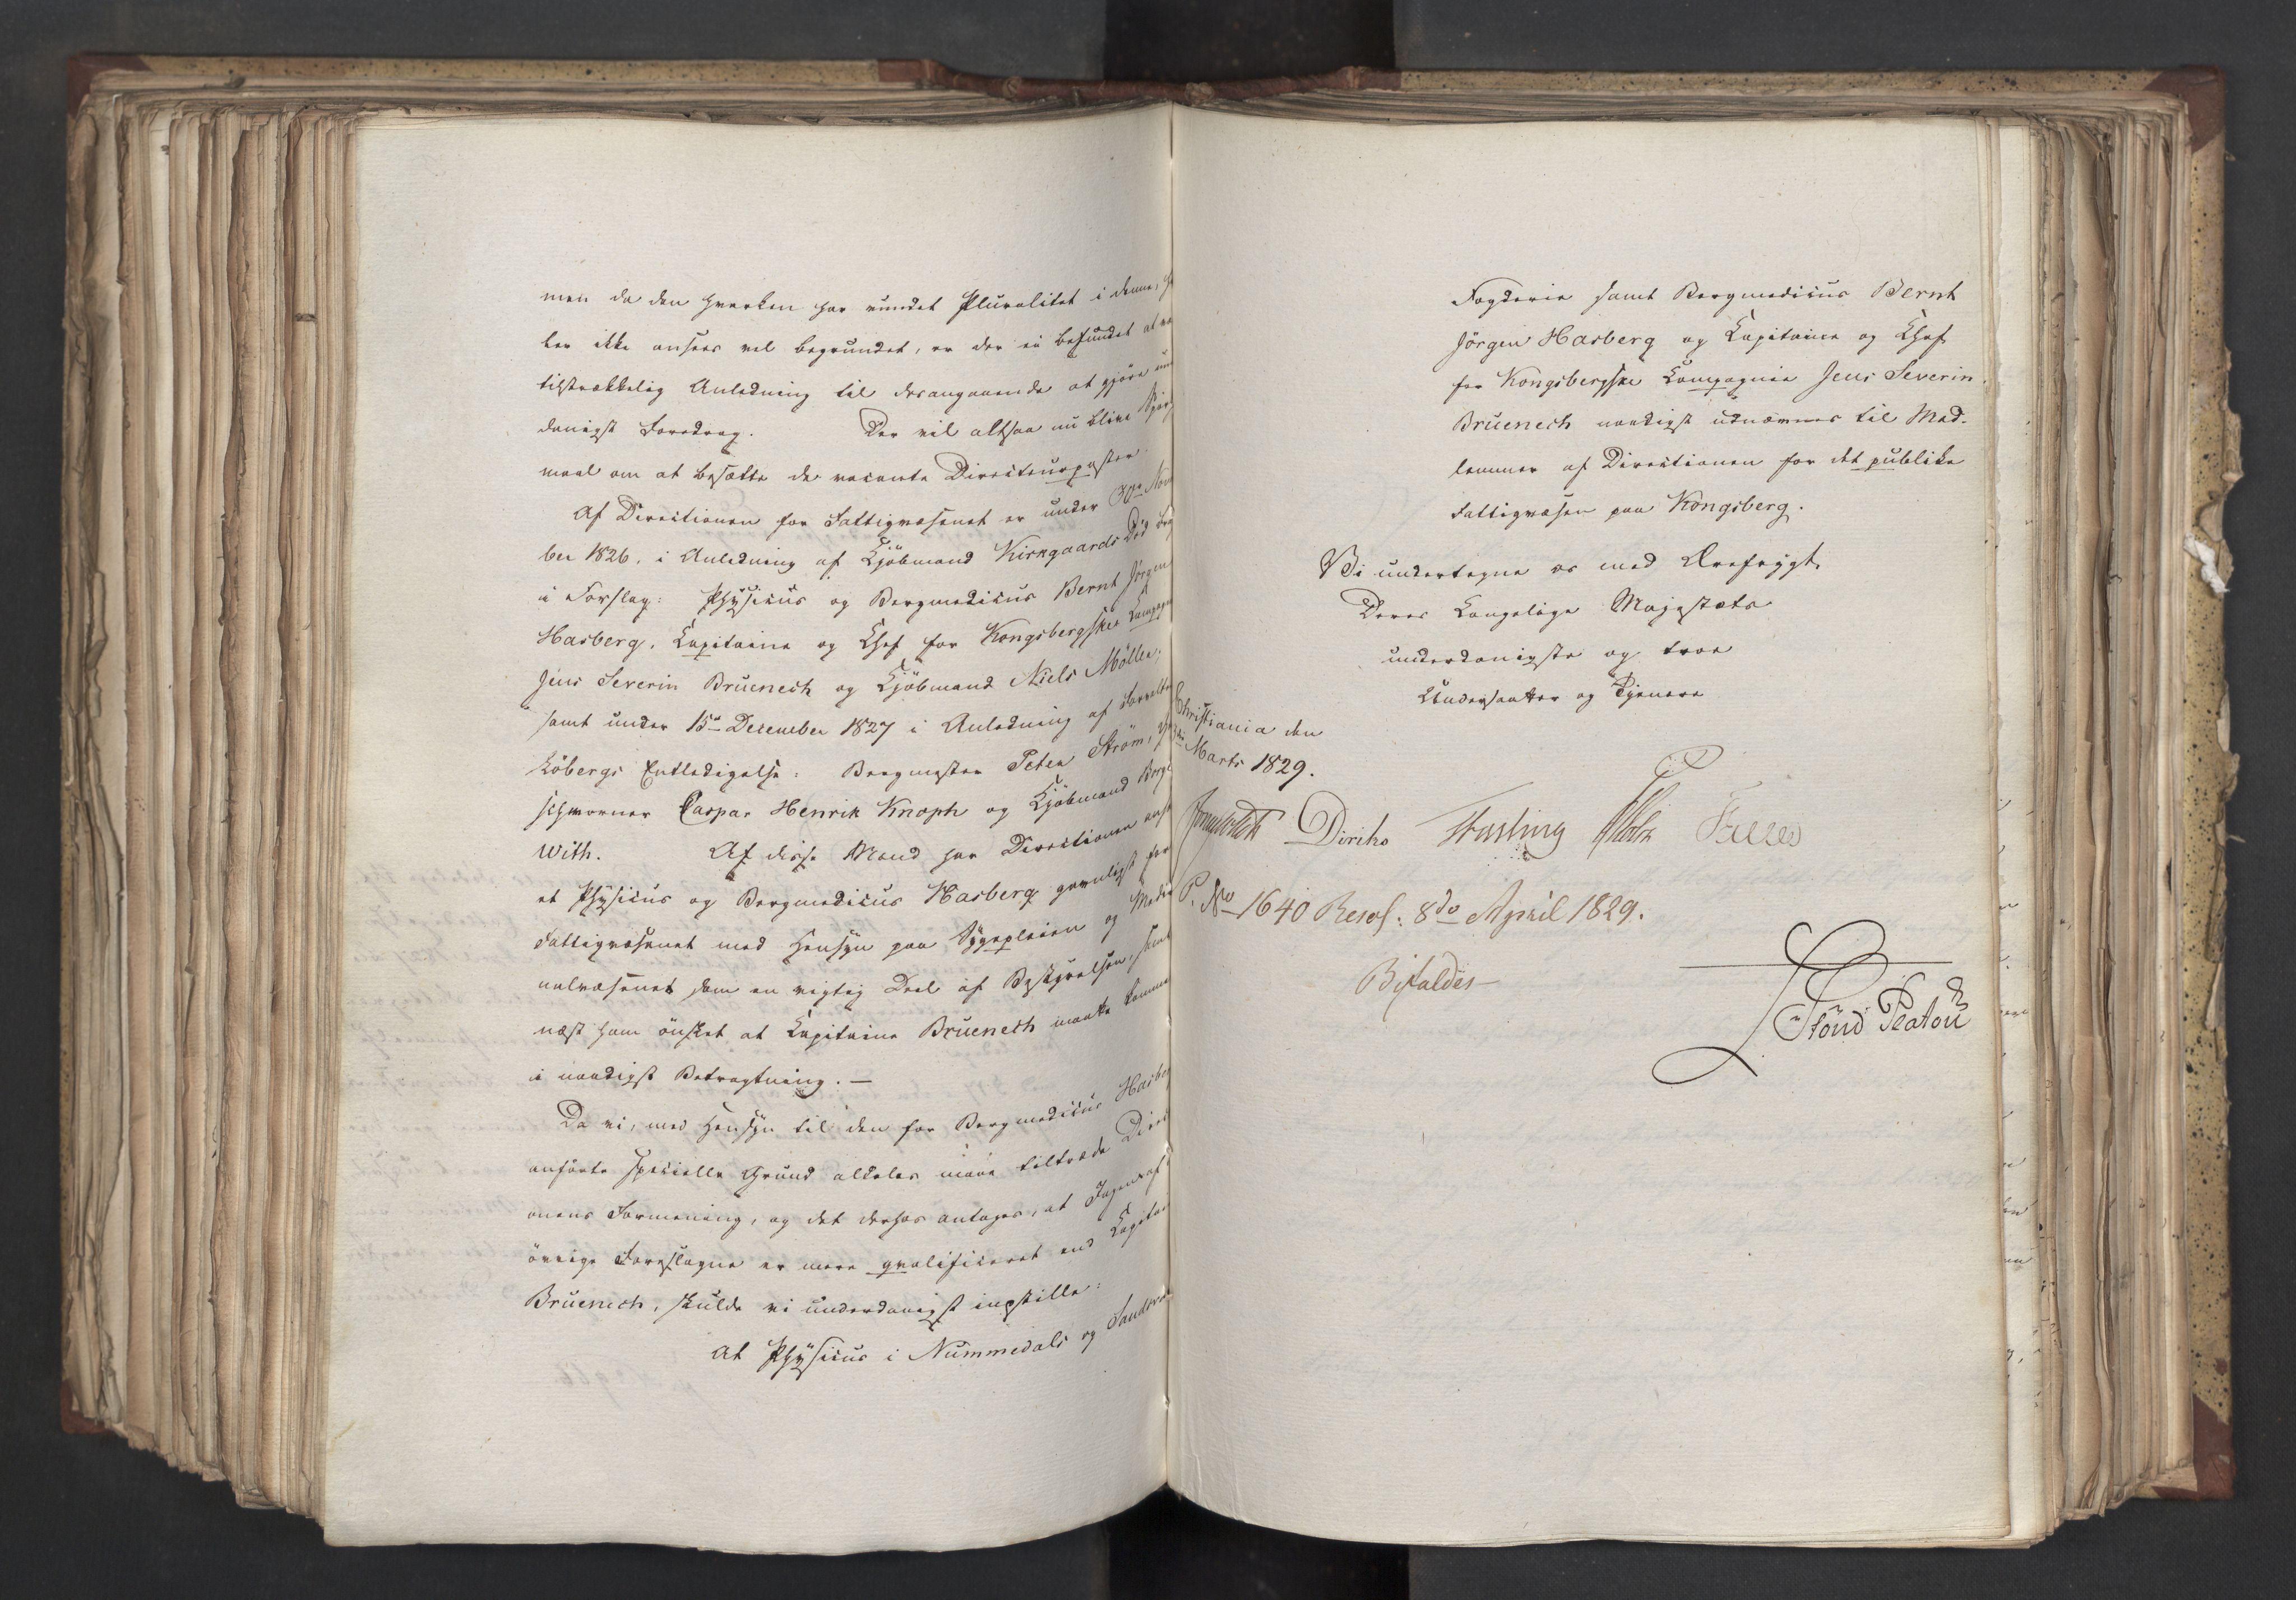 men da den hverken har vundet Pluralitet i denne,
ler ikke ansees vel begrundet, er der ei befundet at
tilstrækkelig Anledning til desangaaende at gjøre
danigst Foredrag. Der vil altsaa nu blive Spørs
maal om at besætte de vacante Directeurposter.
Af Directionen for Fattigvæsenet er under
ber 1826, i Anledning af Kjöbmand Kirkgaards Död
i Forslag: Physicus og Bergmedicus Bernt Jörgen
Hasberg, Capitaine og Chef for Kongsbergske Compagn
Jens Severin Bruenech og Kjöbmand Niels Möller;
samt under 15de December 1827 i Anledning af
Köbergs Entledigelse: Bergmester Peter Ström,
schworner Caspar Henrik Knoph og Kjöbmand
With. Af disse Mænd har Directionen
et Physicus og Bergmedicus Hasberg gavnligst for
Fattigvæsenet med Hensyn paa Sygepleien og Medici
nalvæsenet som en vigtig Deel af Bestyrelsen, samt
næst ham önsket at Capitaine Bruenech maatte komme
i naadigst Betragtning. —
Da vi, med Hensyn til den for Bergmedicus Hasberg
anförte specielle Grund aldeles maae tiltræde Direc
onens Formening, og det derhos antages, at Ingen af
övrige Foreslagne er mere qvalificeret end Capitai
Bruenech, skulde vi underdanigst indstille:
At Physicus i Nummedals og Sandsvær
Fogderie samt Bergmedicus Bernt
Jörgen Hasberg og Capitaine og Chef
for Kongsbergske Compagnie Jens Severin
Bruenech naadigst udnævnes til Med-
lemmer af Directionen for det publike
Fattigvæsen paa Kongsberg.
Vi undertegne os med Ærefrygt,
Deres Kongelige Majestæts
underdanigste og troe
Undersaatter og Tjenere
Christiania den
Marts 1829.
Diriks Fasting Falsen
P. No 1640 Resol: 8de April 1829.
Bifaldes—
Poul Platou